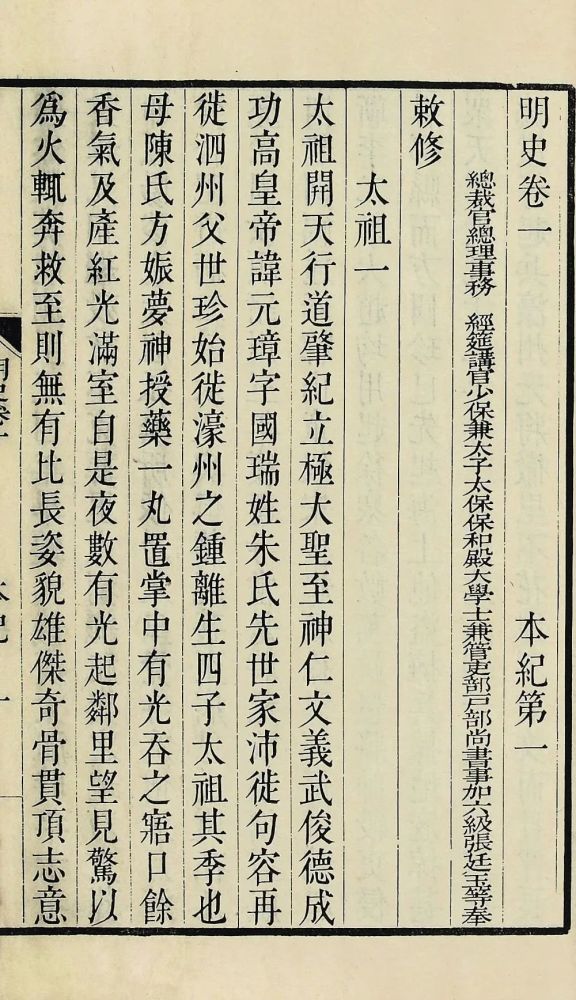 明史卷一 本紀第一
總裁官總理事務 經筵講官少保兼太子太保保和殿大學士兼管吏部戸部尚書事加六級張廷玉等奉
敕修
太祖一
太祖開天行道肇紀立極大聖至神仁文義武俊德成
功高皇帝諱元璋字國瑞姓朱氏先世家沛徙句容再
徙泗州父世珍始徙濠州之鍾離生四子太祖其季也
母陳氏方娠夢神授藥一丸置掌中有光吞之寤口餘
香氣及產紅光滿室自是夜數有光起鄰里望見驚以
爲火輒奔救至則無有比長姿貌雄傑奇骨貫頂志意
明史卷一 本紀 一